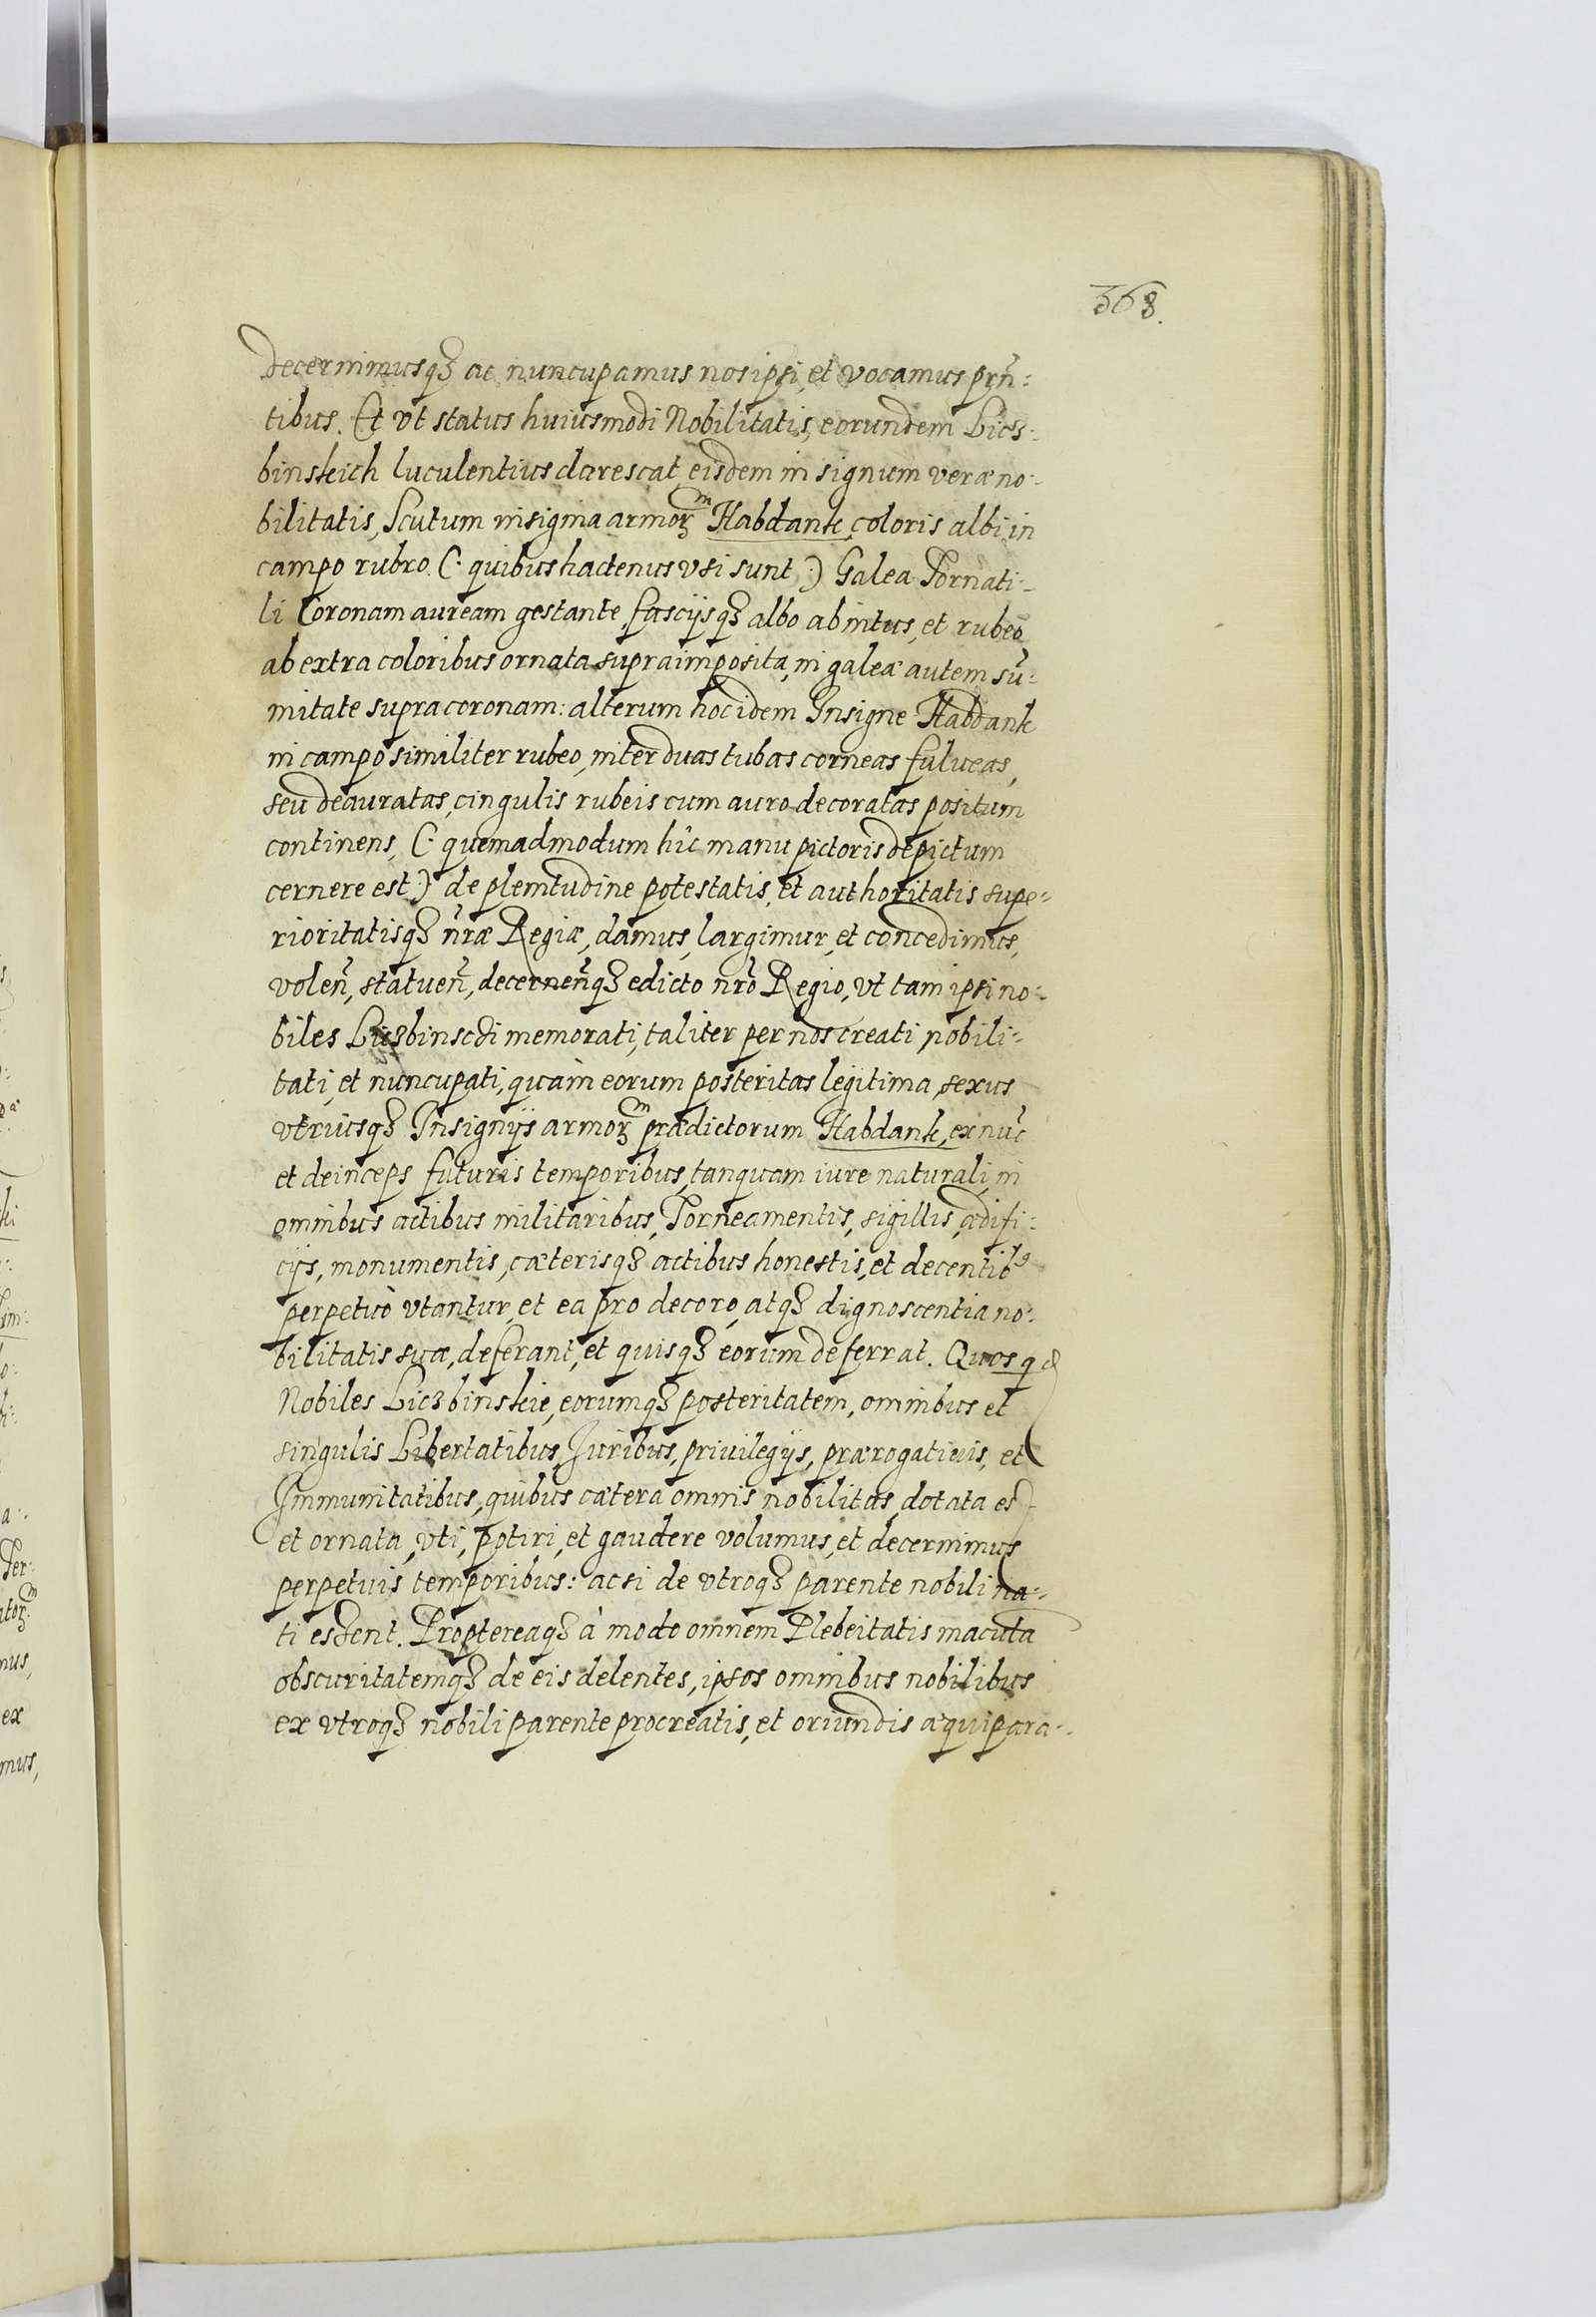 368.
decernimusqꝫ ac nuncupamus nos ipsi, et vocamus prñ:
tibus. Et vt status huiusmodi Nobilitatis, eorundem Licz:
binskich luculentius clarescat, eisdem in signum veræ no:
bilitatis, Scutum insignia armoꝝ Habdank, coloris albi in
campo rubro (: quibus hactenus vsi sunt :) Galea Tornati:
li Coronam auream gestante, fascijsqꝫ albo ab intus, et rubeo
ab extra coloribus ornata supraimposita, in galeæ autem sũ:
mitate supra coronam: alterum hoc idem Insigne Habdank
in campo similiter rubeo, inter duas tubas corneas fulueas,
seu deauratas, cingulis rubeis cum auro decoratas positum
continens, (: quemadmodum hîc manu pictoris depictum
cernere est :) de plenitudine potestatis, et authoritatis supe:
rioritatisqꝫ nr̃æ Regiæ, damus, largimur, et concedimus,
volen̄, statuen̄, decernen̄qꝫ edicto nr̃o Regio, vt tam ipsi no:
biles Liczbinscÿ memorati, taliter per nos creati nobili:
tati, et nuncupati, quàm eorum posteritas legitima, sexus
vtriusqꝫ Insignijs armoꝝ prædictorum Habdank, ex nũc
et deinceps futuris temporibus, tanquam iure naturali, in
omnibus actibus militaribus, Torneamentis, sigillis, ædifi:
cijs, monumentis, cæterisqꝫ actibus honestis, et decentibꝰ
perpetuò vtantur, et ea pro decoro, atqꝫ dignoscentia no:
bilitatis suæ, deferant, et quisqꝫ eorum deferrat. Quosqꝫ
Nobiles Liczbinskie, eorumqꝫ posteritatem, omnibus et
singulis Libertatibus, Juribus, priuilegijs, prærogatiuis, et
Immunitatibus, quibus cætera omnis nobilitas, dotata est
et ornata, vti, potiri, et gaudere volumus, et decernimus
perpetuis temporibus: ac si de vtroqꝫ parente nobili na:
ti essent. Proptereaqꝫ à modo omnem Plebeitatis macula
obscuritatemqꝫ de eis delentes, ipsos omnibus nobilibus
ex vtroqꝫ nobili parente procreatis, et oriundis æquipara: